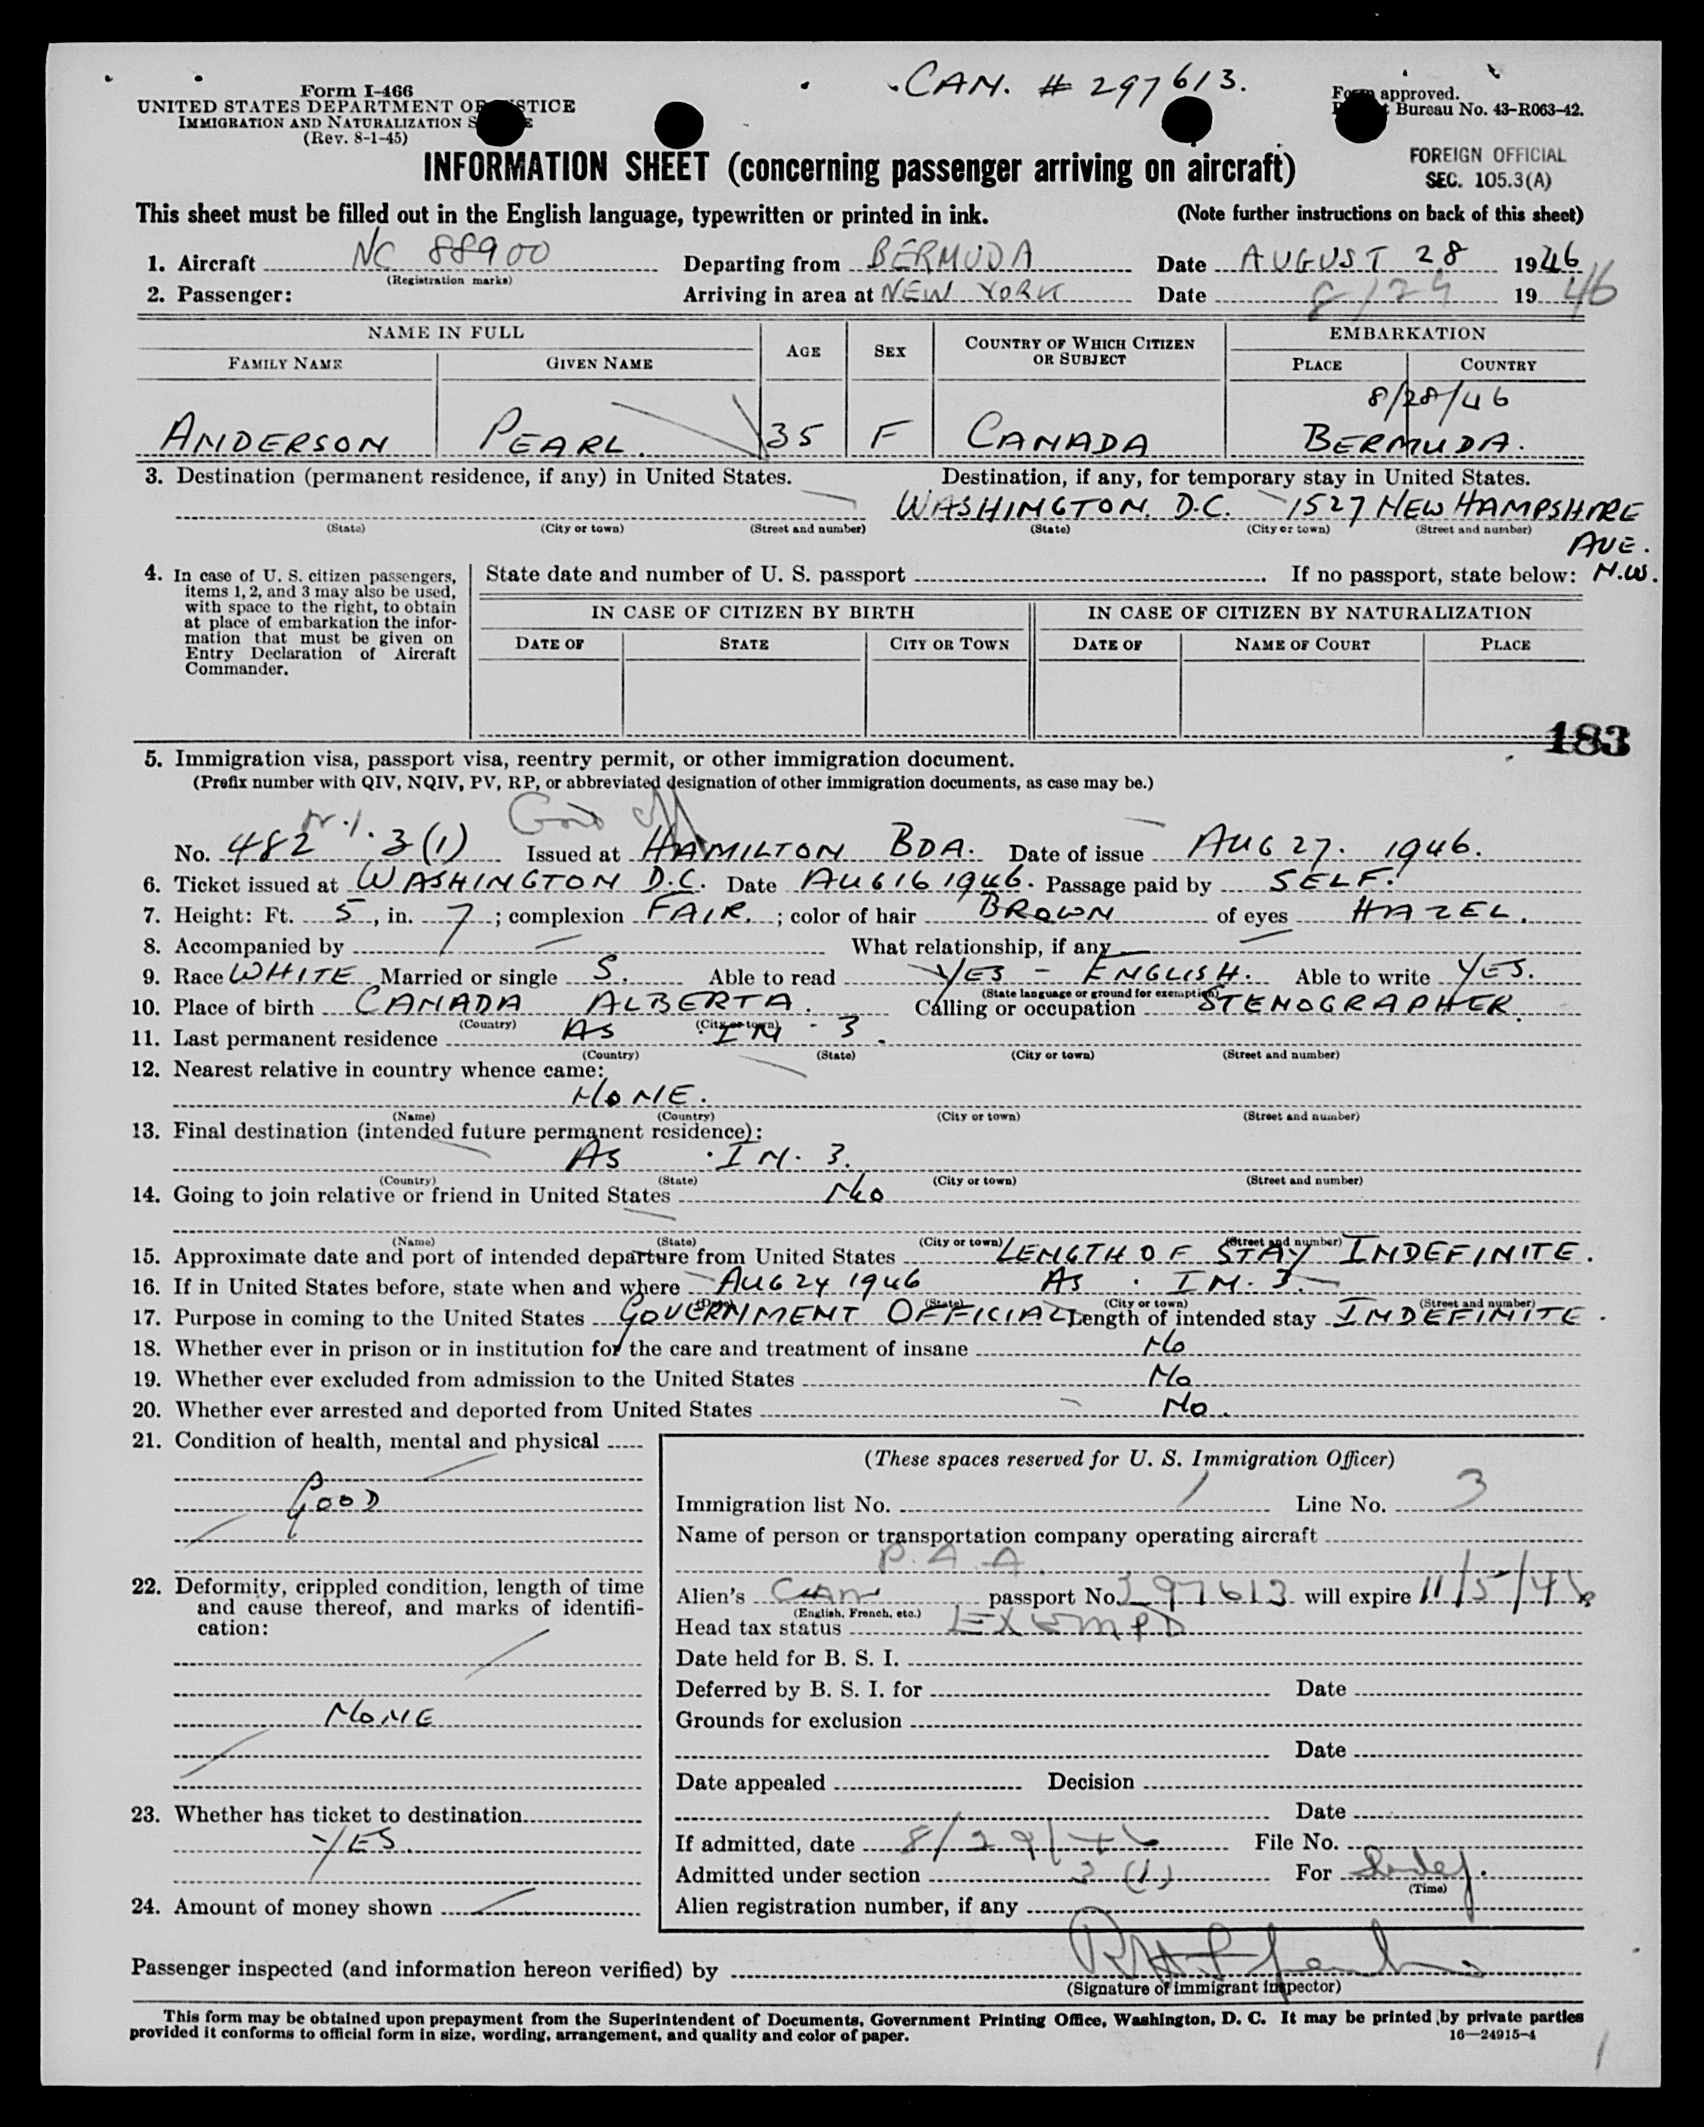 CAN. # 297613.
Form I-466
UNITED STATES DEPARTMENT OF JUSTICE
IMMIGRATION AND NATURALIZATION SERVICE
(Rev. 8-1-45)
Form approved.
Bureau No. 43-R063-42.
INFORMATION SHEET (concerning passenger arriving on aircraft)
FOREIGN OFFICIAL
SEC. 105.3(A)
This sheet must be filled out in the English language, typewritten or printed in ink. (Note further instructions on back of this sheet)
1. Aircraft NC 88900 Departing from BERMUDA Date AUGUST 28 1946
(Registration marks)
2. Passenger: Arriving in area at NEW YORK Date 8/29 1946
NAME IN FULL AGE SEX COUNTRY OF WHICH CITIZEN OR SUBJECT EMBARKATION
FAMILY NAME GIVEN NAME PLACE COUNTRY
8/28/46
ANDERSON PEARL. 35 F CANADA BERMUDA.
3. Destination (permanent residence, if any) in United States. Destination, if any, for temporary stay in United States.
WASHINGTON. D.C. 1527 NEW HAMPSHIRE
(State) (City or town) (Street and number) (State) (City or town) (Street and number)
AVE.
N.W.
4. In case of U. S. citizen passengers, items 1, 2, and 3 may also be used, with space to the right, to obtain at place of embarkation the information that must be given on Entry Declaration of Aircraft Commander.
State date and number of U. S. passport . If no passport, state below:
IN CASE OF CITIZEN BY BIRTH IN CASE OF CITIZEN BY NATURALIZATION
DATE OF STATE CITY OR TOWN DATE OF NAME OF COURT PLACE
183
5. Immigration visa, passport visa, reentry permit, or other immigration document.
(Prefix number with QIV, NQIV, PV, RP, or abbreviated designation of other immigration documents, as case may be.)
No. 482 3(1) Issued at HAMILTON BDA. Date of issue AUG 27. 1946.
6. Ticket issued at WASHINGTON D.C. Date AUG 16 1946. Passage paid by SELF.
7. Height: Ft. 5, in. 7; complexion FAIR.; color of hair BROWN of eyes HAZEL.
8. Accompanied by What relationship, if any
9. Race WHITE Married or single S. Able to read YES - ENGLISH. Able to write YES.
(State language or ground for exemption)
10. Place of birth CANADA ALBERTA. Calling or occupation STENOGRAPHER.
(Country) (City or town)
11. Last permanent residence AS IN - 3.
(Country) (State) (City or town) (Street and number)
12. Nearest relative in country whence came:
NONE.
(Name) (Country) (City or town) (Street and number)
13. Final destination (intended future permanent residence):
AS . IN. 3.
(Country) (State) (City or town) (Street and number)
14. Going to join relative or friend in United States No
(Name) (State) (City or town) (Street and number)
15. Approximate date and port of intended departure from United States LENGTH OF STAY INDEFINITE.
16. If in United States before, state when and where AUG 24 1946 AS . IN. 3.
(Date) (State) (City or town) (Street and number)
17. Purpose in coming to the United States GOVERNMENT OFFICIAL Length of intended stay INDEFINITE.
18. Whether ever in prison or in institution for the care and treatment of insane No
19. Whether ever excluded from admission to the United States No
20. Whether ever arrested and deported from United States No.
21. Condition of health, mental and physical
GOOD
22. Deformity, crippled condition, length of time and cause thereof, and marks of identification:
NONE
23. Whether has ticket to destination
YES.
24. Amount of money shown
(These spaces reserved for U. S. Immigration Officer)
Immigration list No. 1 Line No. 3
Name of person or transportation company operating aircraft
P. A. A.
Alien's CAN passport No. 297613 will expire 11/5/46
(English, French, etc.)
Head tax status EXEMPT
Date held for B. S. I.
Deferred by B. S. I. for Date
Grounds for exclusion
Date
Date appealed Decision
Date
If admitted, date 8/29/46 File No.
Admitted under section 3(1) For
(Time)
Alien registration number, if any
Passenger inspected (and information hereon verified) by
(Signature of immigrant inspector)
This form may be obtained upon prepayment from the Superintendent of Documents, Government Printing Office, Washington, D. C. It may be printed by private parties
provided it conforms to official form in size, wording, arrangement, and quality and color of paper. 16—24915-4